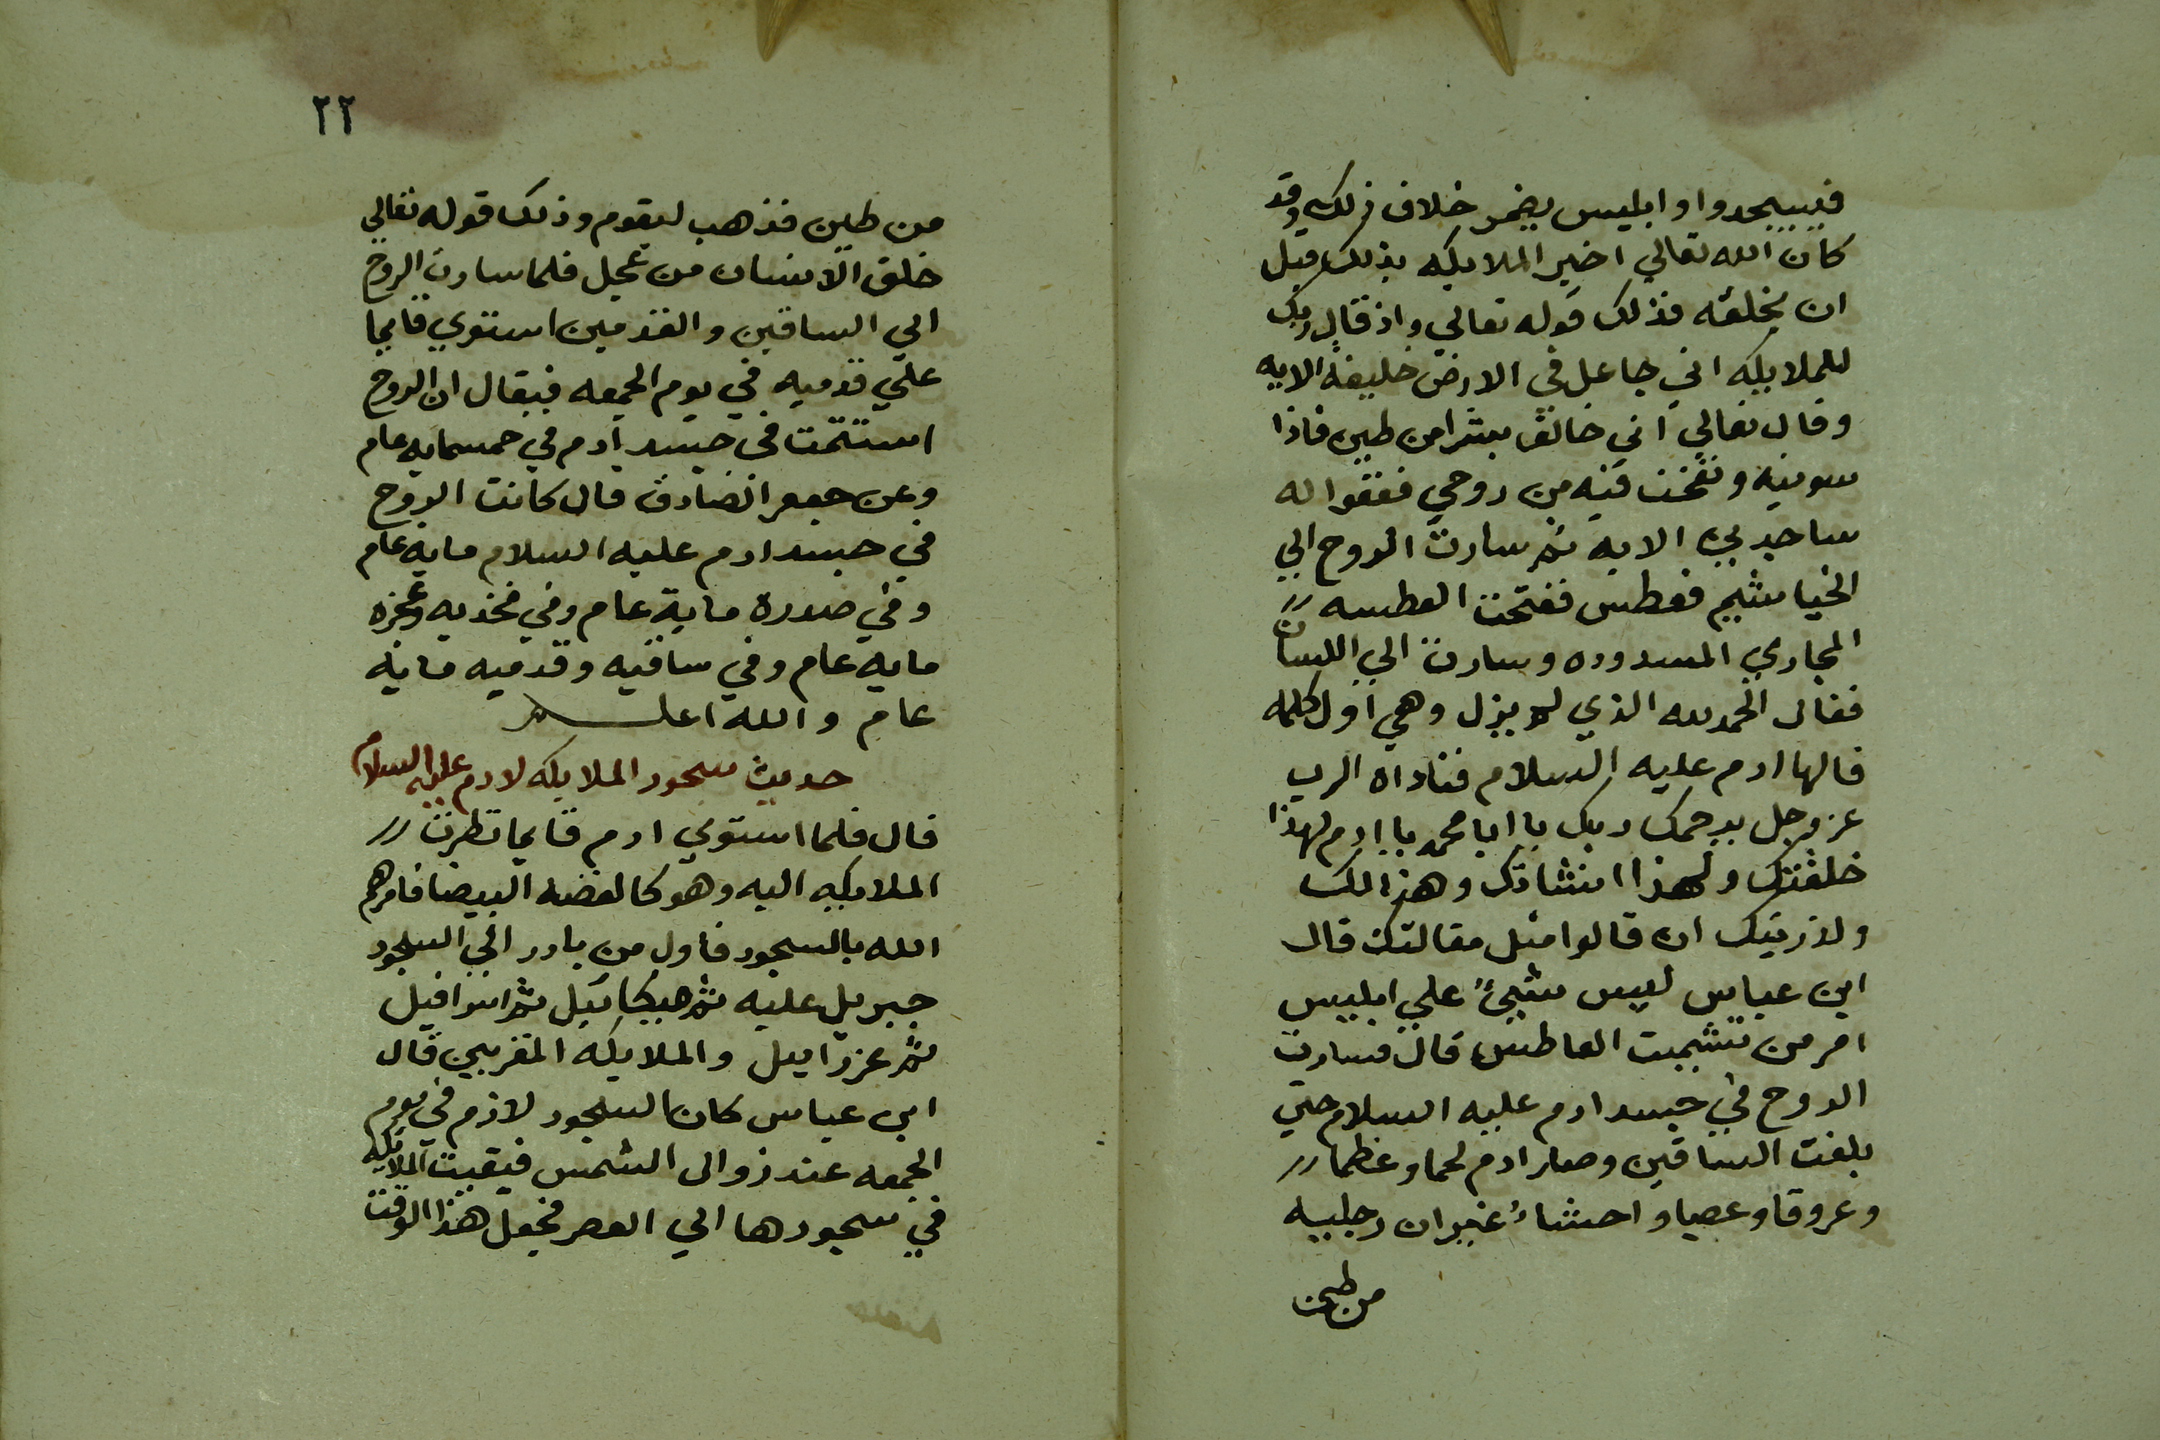 فيسجدوا وابليس يضمر خلاف ذلك وقد
كان الله تعالي اخبر الملايكه بذلك قبل
ان يخلقه فذلك قوله تعالي واذ قال ربك
للملايكه اني جاعل في الارض خليفة الايه
وقال تعالي اني خالق بشرا من طين فاذا
سويته ونفخت فيه من روحي فقعوا له
ساجدين الايه ثم سارت الروح الي
الخياشيم فعطس ففتحت العطسه
المجاري المسدوده وسارت الي اللسان
فقال الحمد لله الذي لم يزل وهي اول كلمه
قالها ادم عليه السلام فناداه الرب
عز وجل يرحمك ربك يا ابا محمد يا ادم لهذا
خلقتك ولهذا انشاتك وهذا لك
ولذريتك ان قالوا مثل مقالتك قال
ابن عباس ليس شيئ علي ابليس
امر من تشميت العاطس قال فسارت
الروح في جسد ادم عليه السلام حتي
بلغت الساقين وصار ادم لحما وعظما
وعروقا وعصبا واحشاء غير ان رجليه
من طين
٢٢
من طين فذهب ليقوم وذلك قوله تعالي
خلق الانسان من عجل فلما سارت الروح
الي الساقين والقدمين استوي قايما
علي قدميه في يوم الجمعه فيقال ان الروح
استتمت في جسد آدم في خمسمايه عام
وعن جعفر الصادق قال كانت الروح
في جسد ادم عليه السلام مايه عام
وفي صدره ماية عام وفي فخذيه وعجزه
مايه عام وفي ساقيه وقدميه مايه
عام والله اعلم
حديث سجود الملايكه لادم عليه السلام
قال فلما استوي ادم قايما نظرت
الملايكه اليه وهو كالفضه البيضا فامرهم
الله بالسجود فاول من بادر الي السجود
جبريل عليه ثم ميكائيل ثم اسرافيل
ثم عزراييل والملايكه المقربين قال
ابن عباس كان السجود لادم في يوم
الجمعه عند زوال الشمس فبقيت الملايكه
في سجودها الي العصر فجعل هذا الوقت